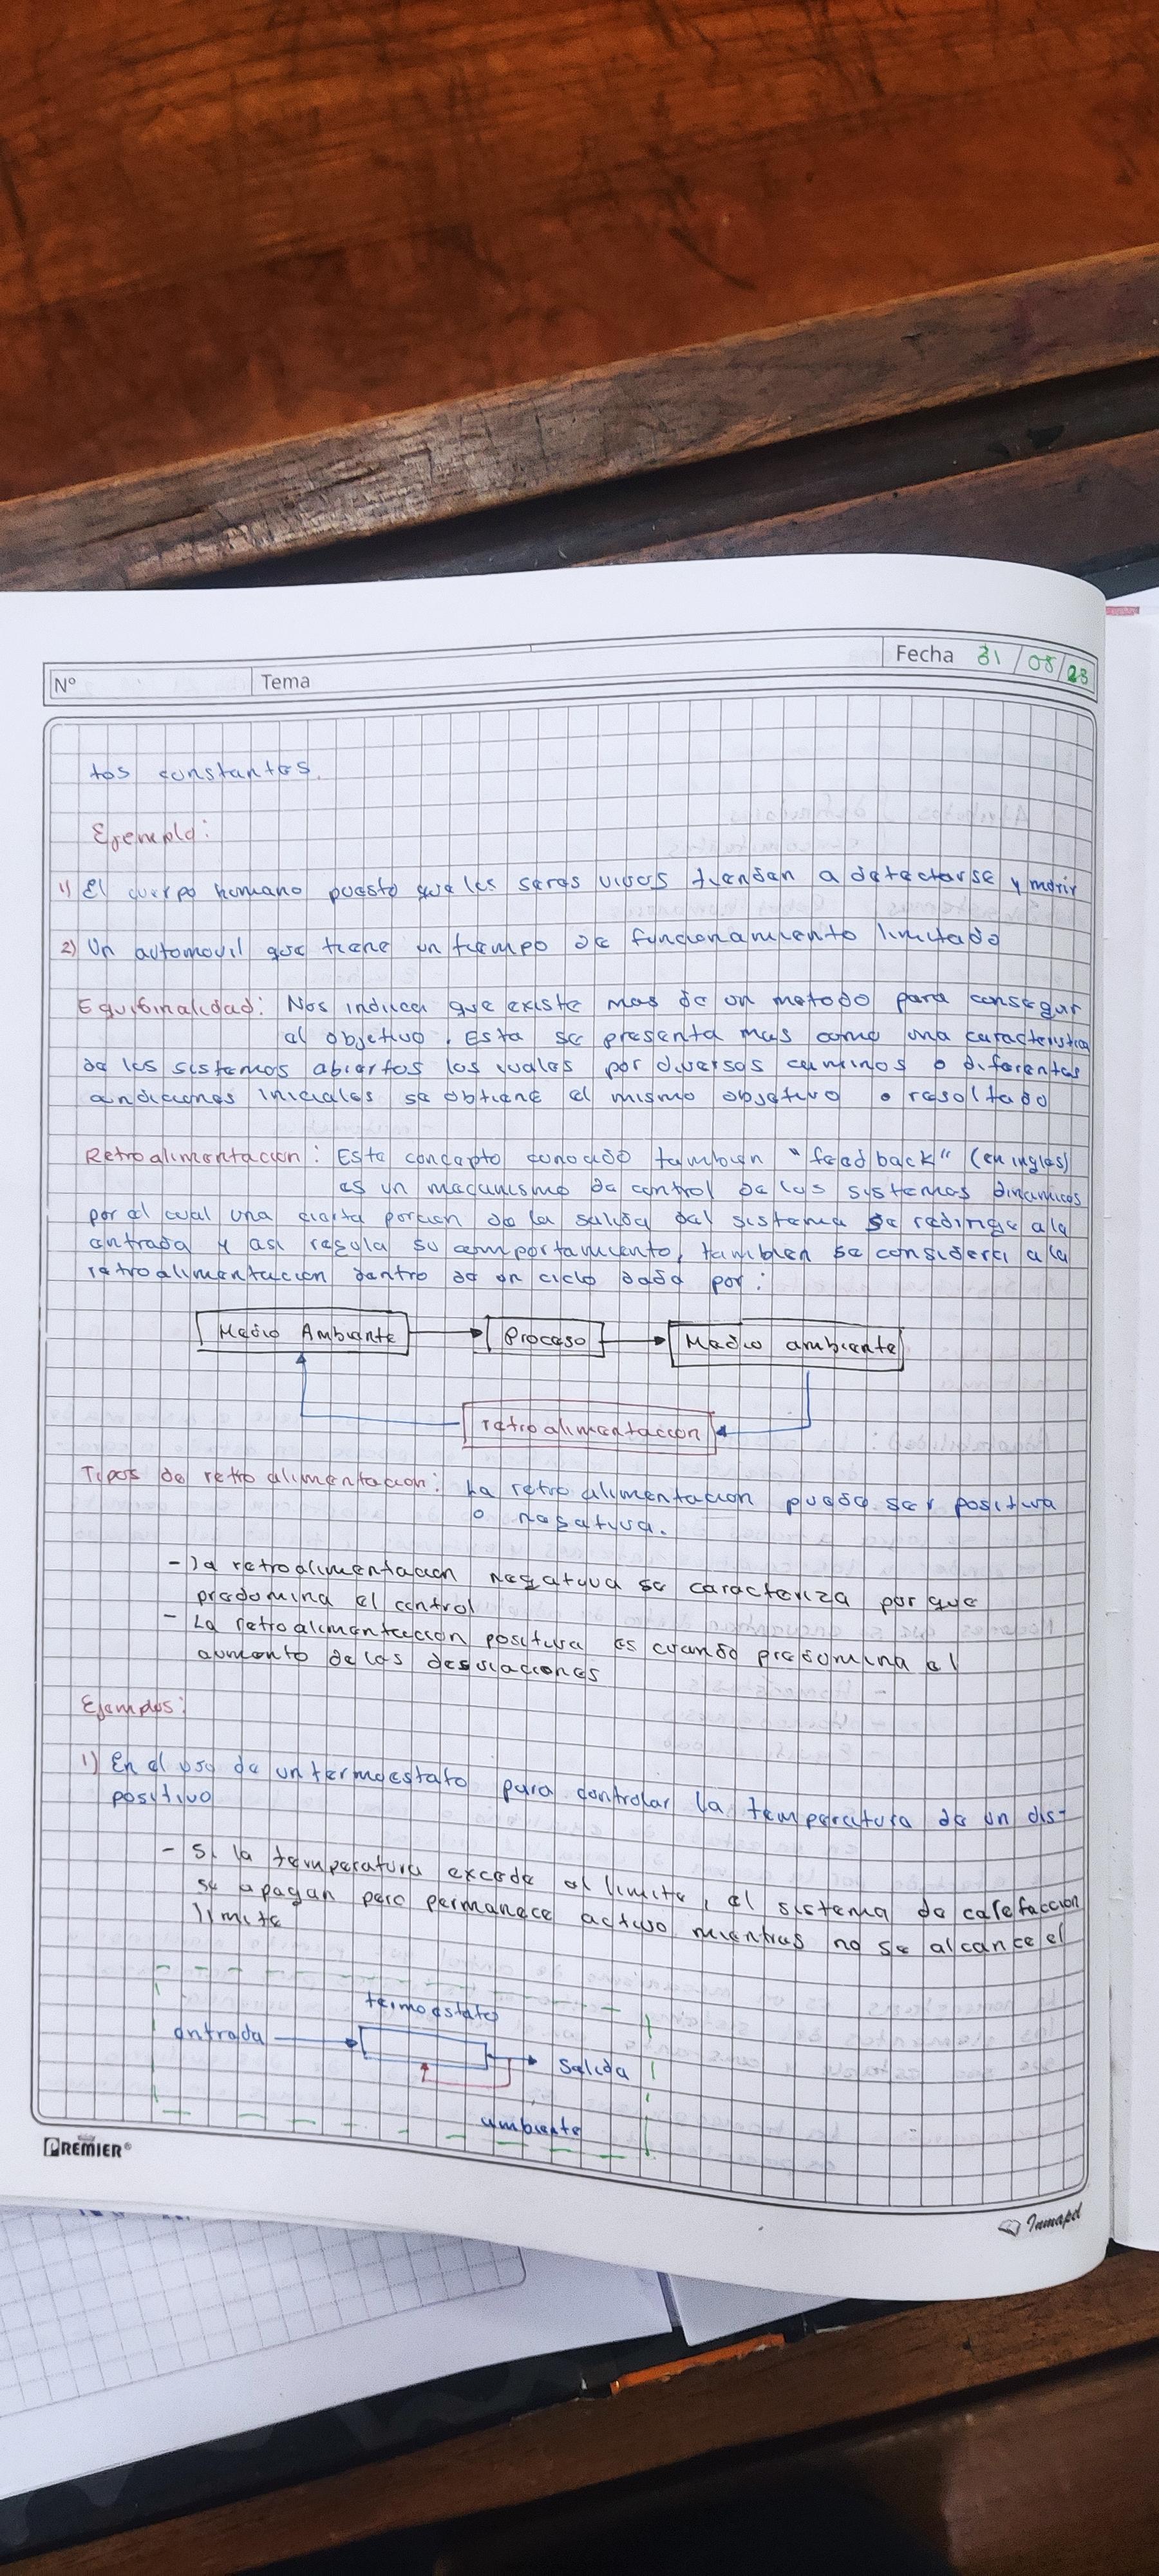 Nº Tema Fecha 31/08/23
tos constantes.
Ejemplo:
1) El cuerpo humano puesto que los seres vivos tienden a detectarse y morir
2) Un automovil que tiene un tiempo de funcionamiento limitado
Equifinalidad: Nos induce que existe mas de un metodo para conseguir
el objetivo. Esta se presenta mas como una caracteristica
de los sistemas abiertos los cuales por diversos caminos o diferentes
condiciones iniciales se obtiene el mismo objetivo o resoltado
Retroalimentacion: Este concepto conocido tambien "feedback" (en ingles)
es un mecanismo de control de los systemas dinamicos
por el cual una cierta porcion de la salida del sistema se redirige a la
entrada y asi regula su comportamiento, tambien se considera a la
retroalimentacion dentro de un ciclo dado por:
Medio Ambiente Proceso Medio ambiente
retroalimentacion
Tipos de retroalimentacion: La retroalimentacion puede ser positiva
o negativa.
- la retroalimentacion negativa se caracteriza por que
predomina el control
- La retroalimentacion positiva es cuando predomina el
aumento de las desviaciones
Ejemplos:
1) En el uso de un termoestato para controlar la temperatura de un dis-
positivo
- Si la temperatura excede el limite, el sistema de calefaccion
se apagan pero permanece activo mientras no se alcance el
limite
termoestato
entrada
salida
ambiente
PREMIER®
Inmapel